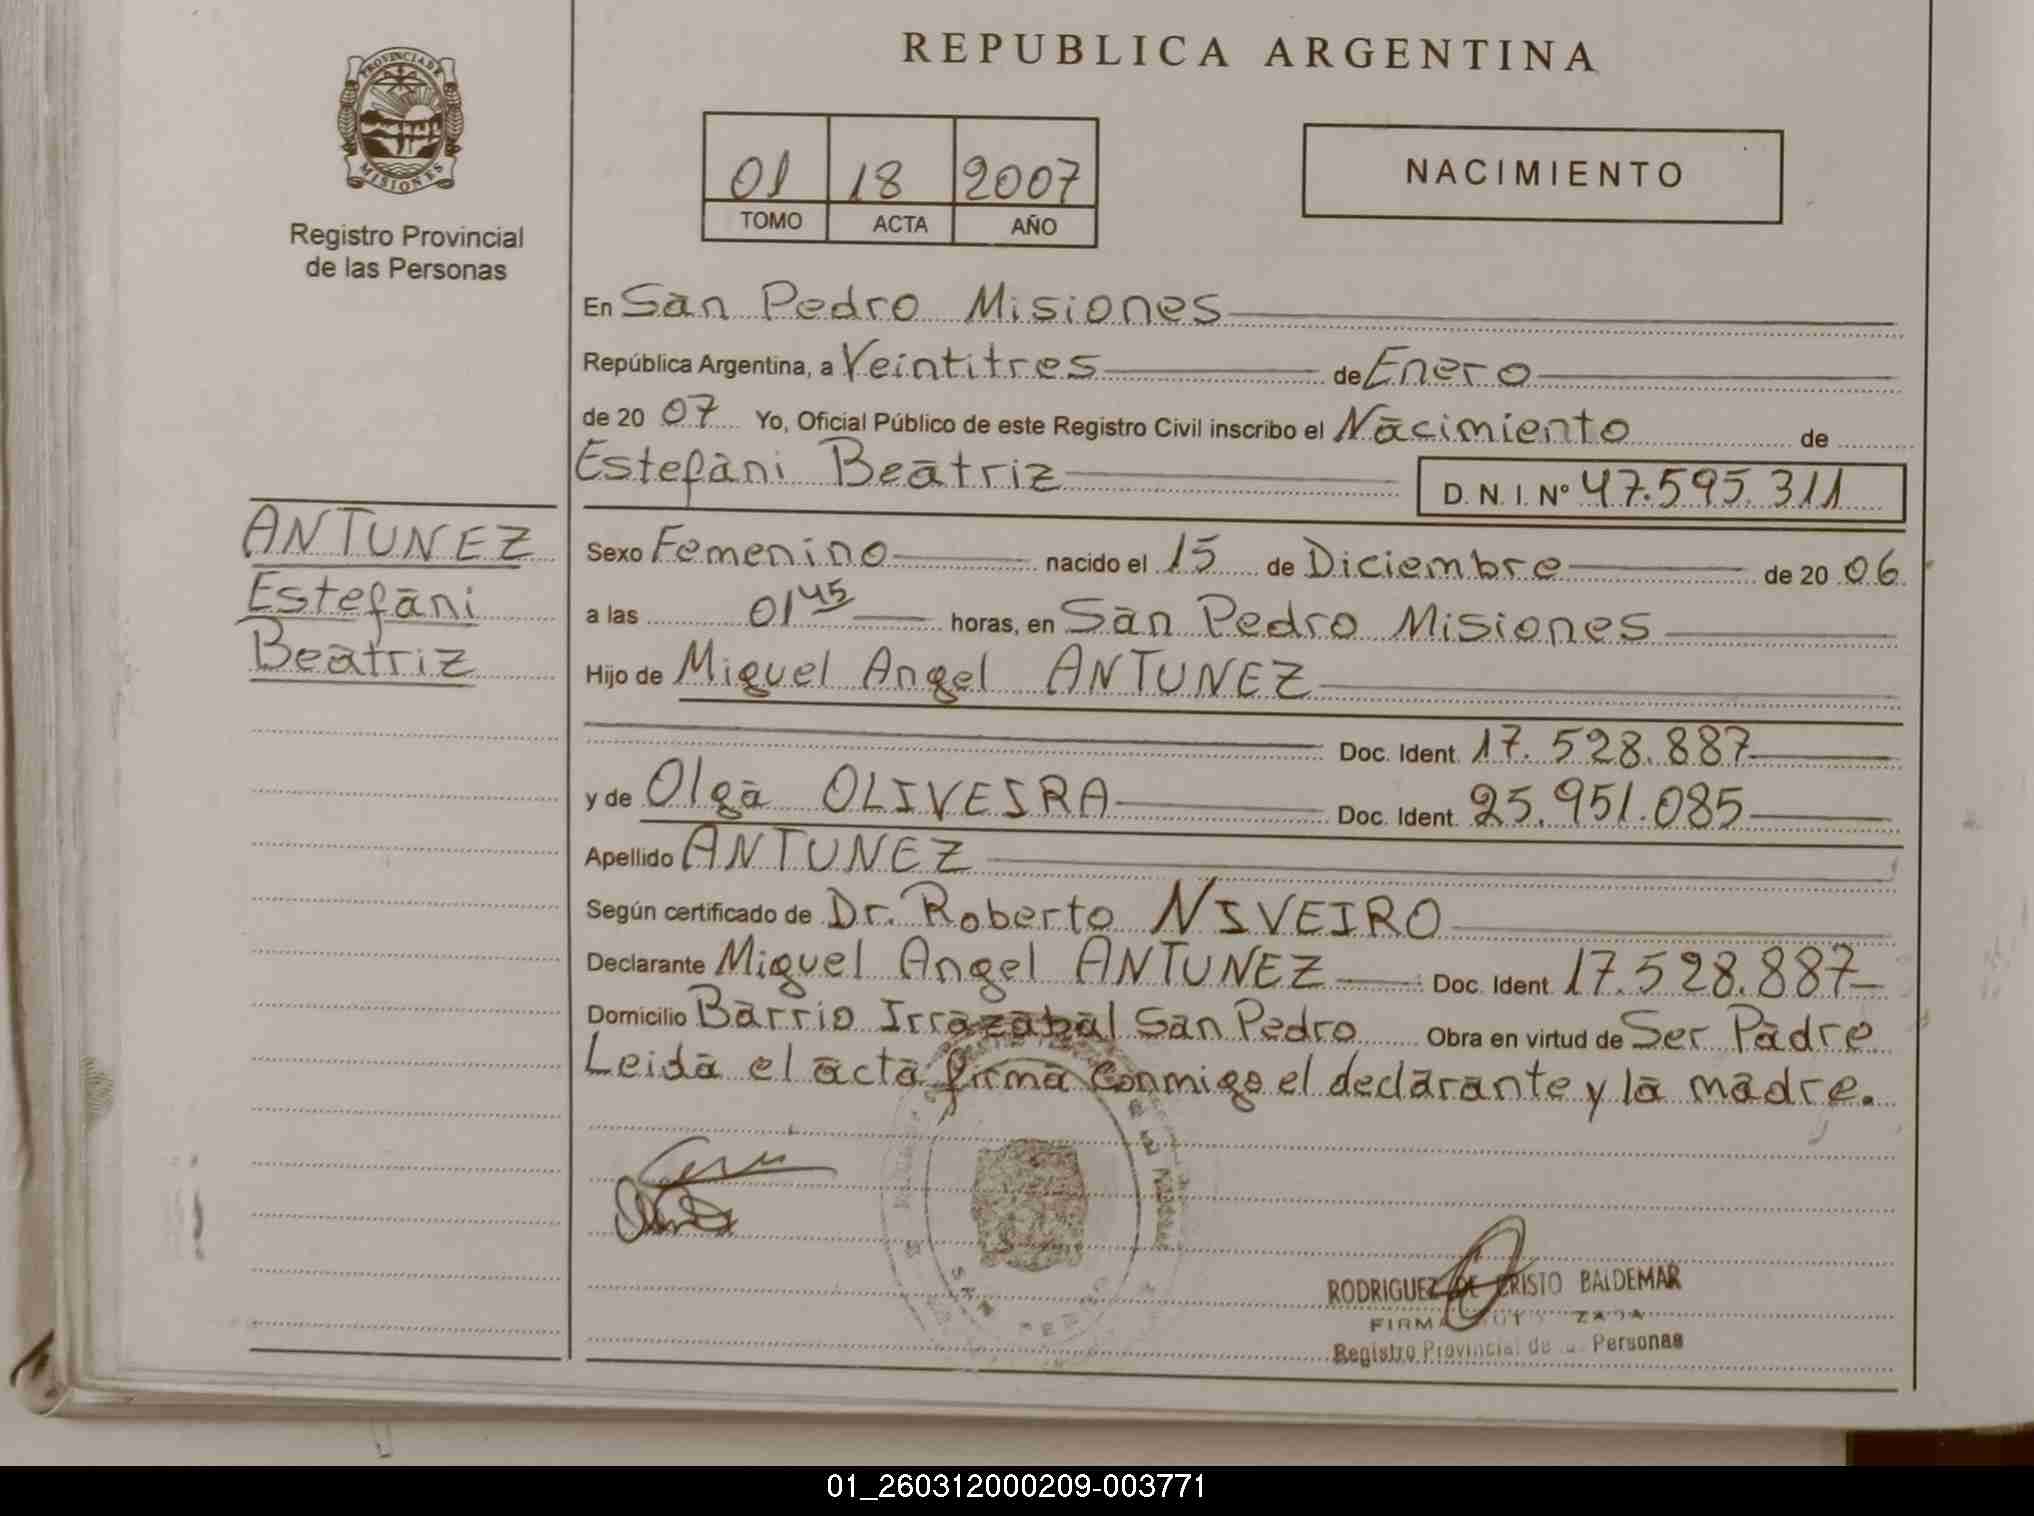 REPUBLICA ARGENTINA
PROVINCIA DE
MISIONES
Registro Provincial
de las Personas
01 18 2007
TOMO ACTA AÑO
NACIMIENTO
En San Pedro Misiones
República Argentina, a Veintitres de Enero
de 20 07 Yo, Oficial Público de este Registro Civil inscribo el Nacimiento de
Estefani Beatriz D. N. I. Nº 47.595.311
ANTUNEZ
Estefani
Beatriz
Sexo Femenino nacido el 15 de Diciembre de 20 06
a las 01 45 horas, en San Pedro Misiones
Hijo de Miguel Angel ANTUNEZ
Doc. Ident. 17.528.887
y de Olga OLIVEIRA Doc. Ident. 25.951.085
Apellido ANTUNEZ
Según certificado de Dr. Roberto NIVEIRO
Declarante Miguel Angel ANTUNEZ Doc. Ident. 17.528.887
Domicilio Barrio Irrazabal San Pedro Obra en virtud de Ser Padre
Leida el acta firma conmigo el declarante y la madre.
RODRIGUEZ DE CRISTO BALDEMAR
FIRMA
Registro Provincial de Personas
01_260312000209-003771